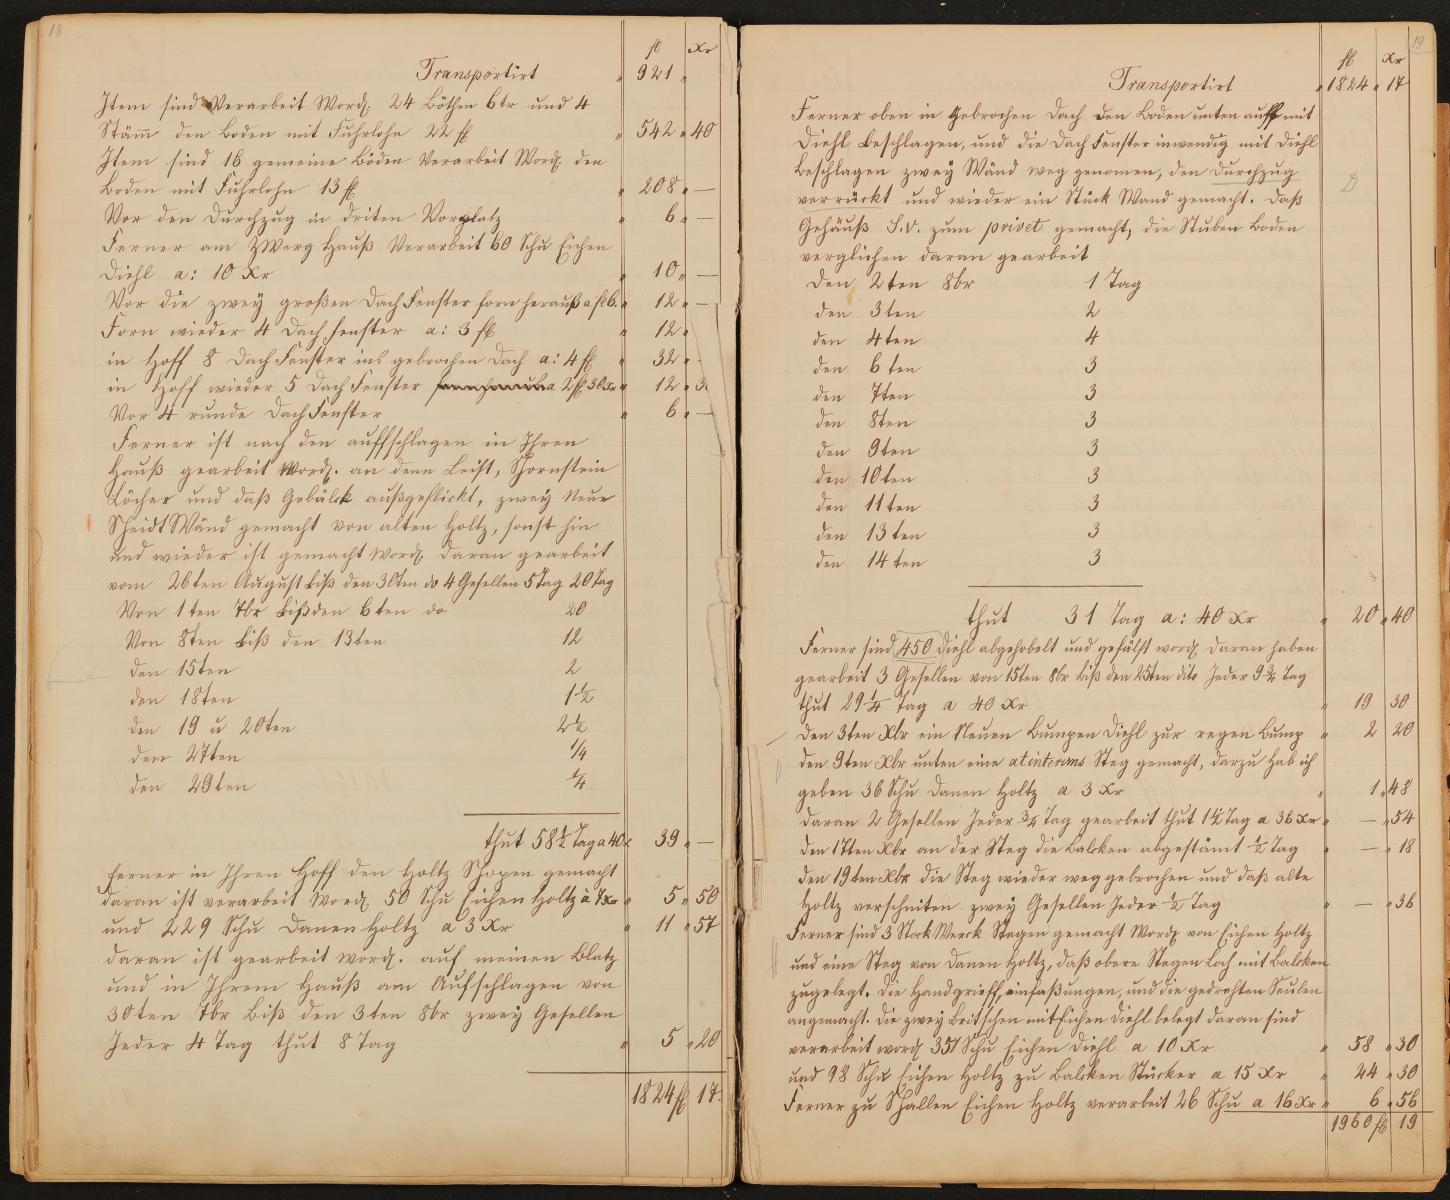 18
fl Xr
Transportirt " 921 "
Item sind Verarbeit Word: 24 Böthen 6tr und 4
Stäm̄ den Boden mit Fuhrlohn 22 fl " 542 " 40
Item sind 16 gemeine Böden Verarbeit Word. den
Boden mit Fuhrlohn 13 fl " 208 " —
Vor den Durchzug in driten Vorplatz " 6 " —
Ferner am Zwerg Hauß Verarbeit 60 Schu Eichen
Diehl a: 10 Xr " 10 " —
Vor die zwey großen Dach Fenster forn herauß a fl 6. " 12 " —
Forn wieder 4 Dach fenster a: 3 fl " 12 "
in Hoff 8 Dach Fenster ins gebrochen Dach a: 4 fl " 32 "
in Hoff wieder 5 Dach Fenster a 2 fl 30 Xr " 12 " 3
Vor 4 runde Dach Fenster " 6 " —
Ferner ist nach den auffschlagen in Ihren
Hauß gearbeit Word. an denn Leist, Schornstein
Löcher und daß Gebälck außgeflickt, zwey Neue
Scheidt Wänd gemacht von alten Holtz, sonst hin
und wieder ist gemacht word. daran gearbeit
vom 26ten August biß den 30ten do 4 Gesellen 5 Tag 20 Tag
Von 1ten 7br biß den 6ten do 20
Von 8ten biß den 13ten 12
den 15ten 2
den 18ten 1½
den 19 u 20ten 2½
den 27ten ¼
den 29ten ¼
thut 58½ Tag a 40 x 39 " —
ferner in Ihren Hoff den Holtz Schopen gemacht
daran ist verarbeit Word. 50 Schu Eichen Holtz à 7 Xr " 5 " 50
und 229 Schu Danen Holtz a 3 Xr " 11 " 57
daran ist gearbeit word. auf meinen Blatz
und in Ihrem Hauß am Aufschlagen von
30ten 7br Biß den 3ten 8br zwey Gesellen
Jeder 4 Tag thut 8 Tag " 5 " 20
1824 fl 17
19
fl Xr
Transportirt " 1824 " 17
Ferner oben in Gebrochen Dach den Boden unten auff mit
Diehl beschlagen, und die Dach Fenster inwendig mit Diehl
beschlagen zwey Wänd weg genomen, den Durchzug
verrückt und wieder ein Stück Wand gemacht. Daß
Gehäuß S.v. zum privet gemacht, die Stuben Boden
verglichen daran gearbeit
den 2ten 8br 1 Tag
den 3ten 2
den 4ten 4
den 6ten 3
den 7ten 3
den 8ten 3
den 9ten 3
den 10ten 3
den 11ten 3
den 13ten 3
den 14ten 3
thut 31 Tag a: 40 Xr " 20 " 40
Ferner sind 450 Diehl abgehobelt und gefälst word. daran haben
gearbeit 3 Gesellen von 15ten 8br biß den 25ten dito Jeder 9¾ Tag
thut 29¼ Tag a 40 Xr " 19 30
den 3ten Xbr ein Neuen Bumpen Diehl zur regen Bump " 2 20
den 9ten Xbr unten eine atinterims Steg gemacht, darzu Hab ich
geben 36 Schu Danen Holtz a 3 Xr " 1 " 48
daran 2 Gesellen Jeder ¾ Tag gearbeit thut 1½ Tag a 36 Xr " — " 54
den 17ten Xbr an der Steg die Balcken abgestämt ½ Tag " — " 18
den 19ten Xbr die Steg wieder weg gebrochen und daß alte
Holtz verschniten zwey Gesellen Jeder ½ Tag " — " 36
Ferner sind 3 Stock Werck Stegen gemacht Word. von Eichen Holtz
und eine Steg von Danen Holtz, daß obere Stegen Loch mit Balcken
zugelegt. Die Handgrieff, einfaßungen, und die gedrehten Seulen
angemacht. Die zwey Britschen mit Eichen Diehl belegt daran sind
verarbeit word. 351 Schu Eichen Diehl a 10 Xr " 58 " 30
und 98 Schu Eichen Holtz zu Balcken Stücker a 15 Xr " 24 " 30
Ferner zu Schallen Eichen Holtz verarbeit 26 Schu a 16 Xr " 6 " 56
1960 fl 19